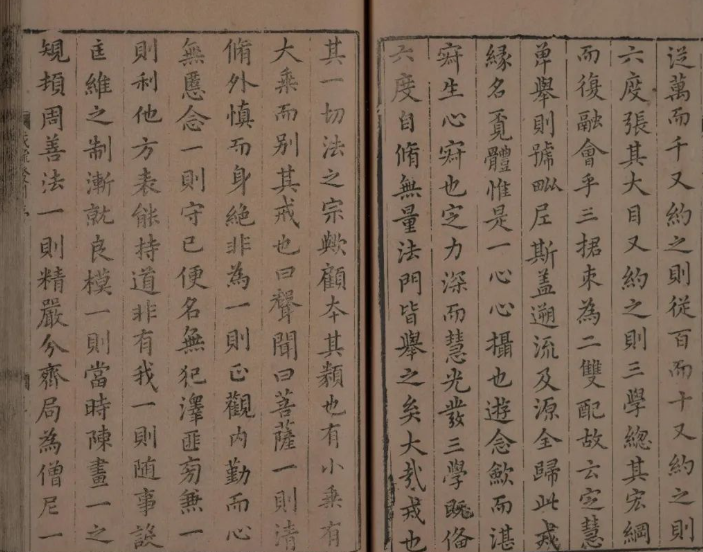 從萬而千又約之則從百而十又約之則
六度張其大目又約之則三學總其宏綱
而復融會乎三捃束為二雙配故云定慧
单舉則號毗尼斯蓋遡流及源全歸此戒
緣名覔體惟是一心心攝也遊念歛而湛
寂生心寂也定力深而慧光發三學既俻
六度自脩無量法門皆舉之矣大哉戒也
其一切法之宗歟顧本其類也有小乗有
大乗而别其戒也曰聲聞曰菩薩一則清
脩外慎而身絶非為一則正觀内勤而心
無慝念一則守己便名無犯澤匪旁兼一
則利他方表能持道非有我一則随事設
匡維之制漸就良模一則當時陳畫一之
規頓周善法一則精嚴分齊局為僧尼一